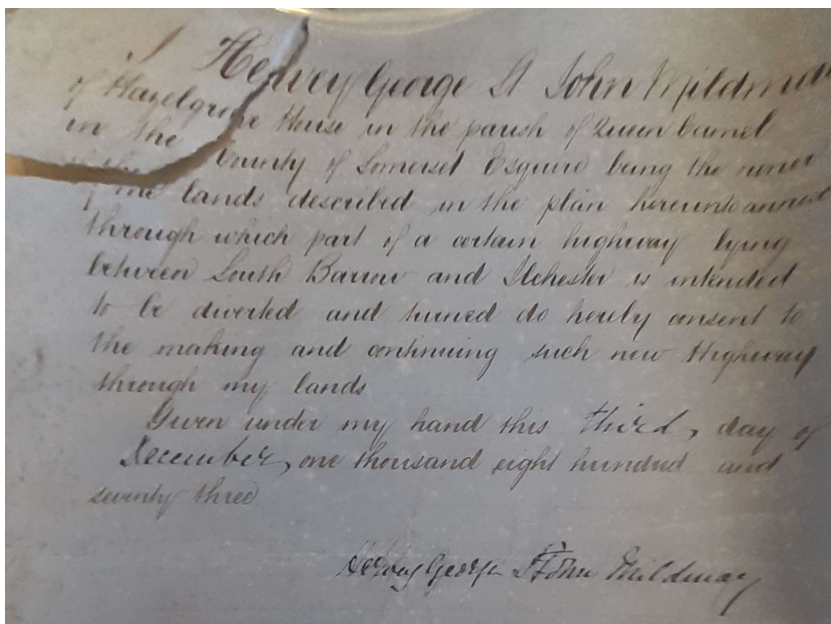 I Hervey George St John Mildmay
of Hazelgrove House in the parish of Queen Camel
in the County of Somerset Esquire being the owner
of the lands described in the plan hereunto annexed
through which part of a certain highway lying
between South Barrow and Ilchester is intended
to be diverted and turned do hereby consent to
the making and continuing such new Highway
through my lands
Given under my hand this third, day of
December, one thousand eight hundred and
seventy three
Hervey George St John Mildmay